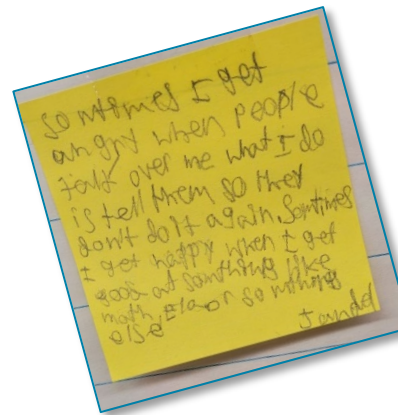 somtimes I get
angry when people
talk over me what I do
is tell them so they
don't do it again. Somtimes
I get happy when I get
good at somthing like
math, ELA or somthing
else